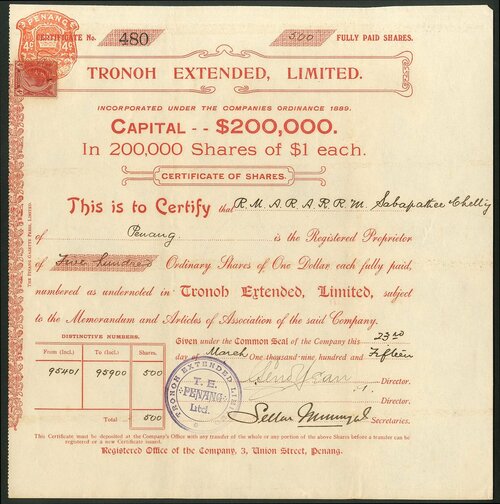 PENANG
4c 4c
CERTIFICATE No. 480 500 FULLY PAID SHARES.
TRONOH EXTENDED, LIMITED.
INCORPORATED UNDER THE COMPANIES ORDINANCE 1889.
CAPITAL - - $200,000.
In 200,000 Shares of $1 each.
CERTIFICATE OF SHARES.
This is to Certify that R. M. A. R. A. R. R. M. Sabapathee Chetty
of Penang is the Registered Proprietor
of Five hundred Ordinary Shares of One Dollar each fully paid,
numbered as undernoted in Tronoh Extended, Limited, subject
to the Memorandum and Articles of Association of the said Company.
DISTINCTIVE NUMBERS.
From (Incl.) To (Incl.) Shares.
95401 95900 500
Total ... 500
Given under the Common Seal of the Company this 23rd
day of March One thousand nine hundred and Fifteen
Director.
Director.
Secretaries.
TRONOH EXTENDED LIMITED
T. E.
PENANG
Ltd.
This Certificate must be deposited at the Company's Office with any transfer of the whole or any portion of the above Shares before a transfer can be
registered or a new Certificate issued.
Registered Office of the Company, 3, Union Street, Penang.
THE PINANG GAZETTE PRESS, LIMITED.